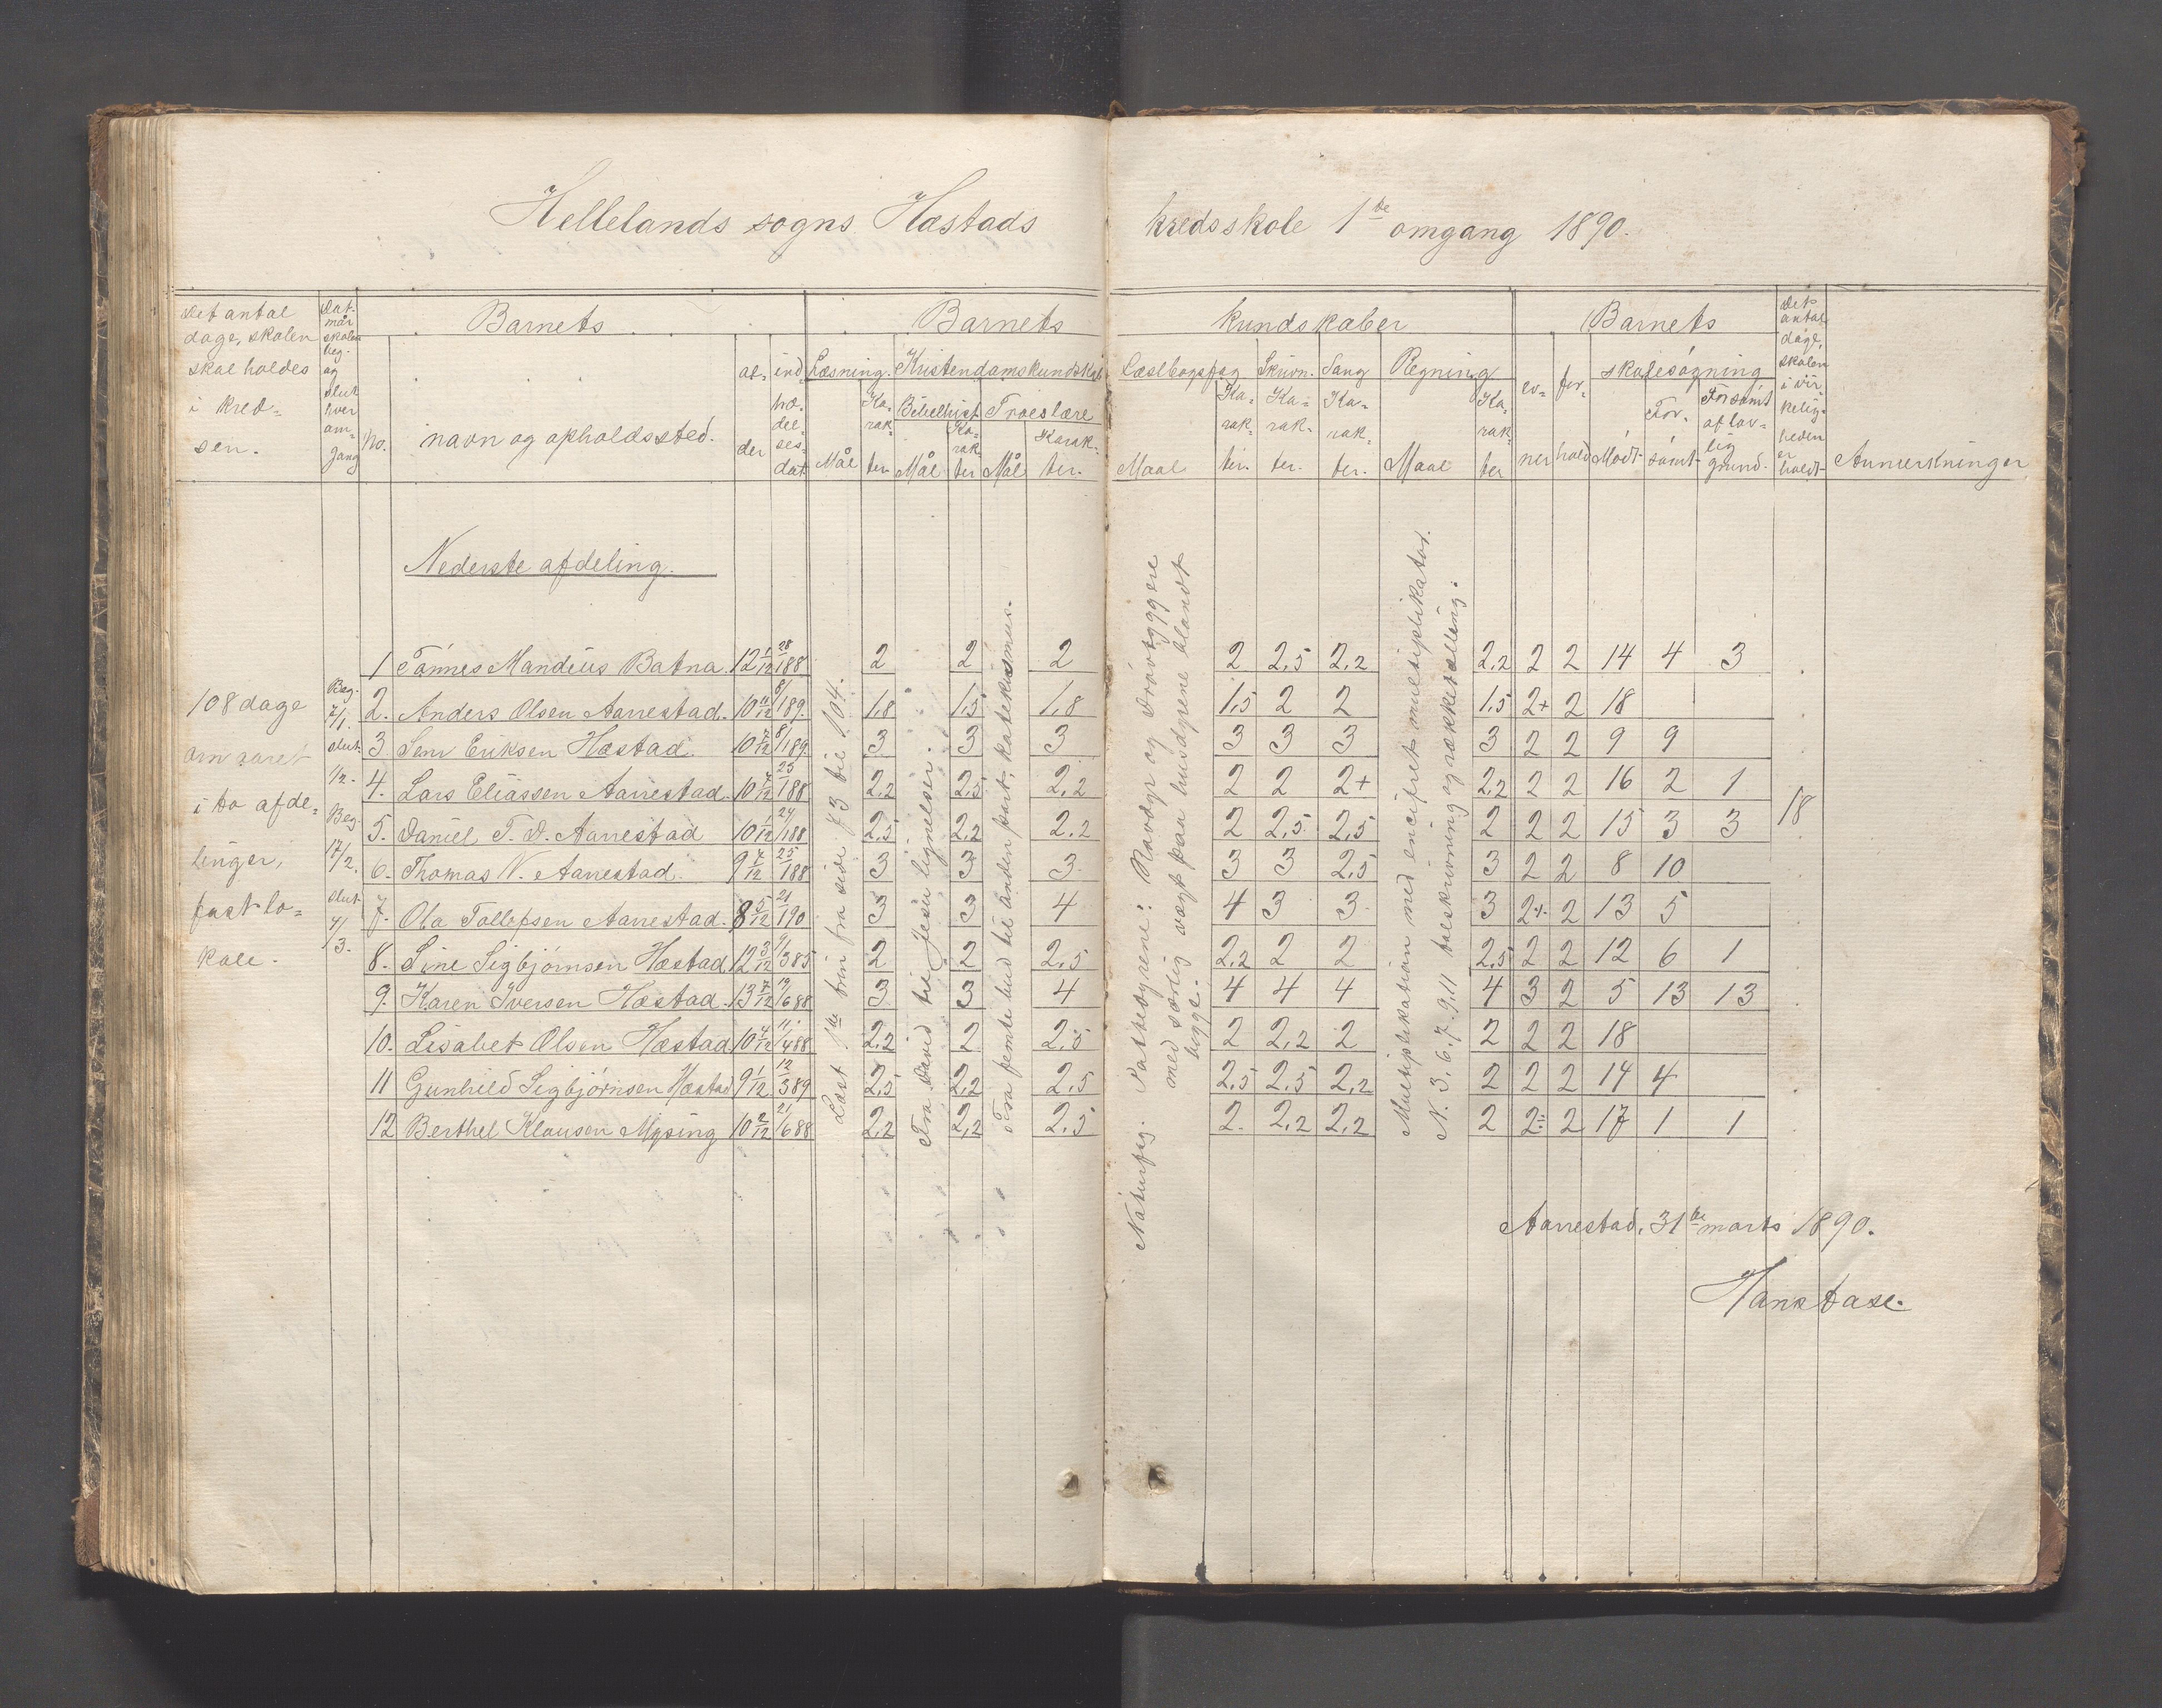 Hellelands sogns Hæstads kredsskole 1ste omgang 1890.
Det antal dage, skolen skal holdes i kredsen.
Dat. når skolen beg. og slut hver omgang
Barnets
No.
navn og opholdssted.
alder
indtrædelsesdat.
Barnets kundskaber
Læsning.
Mål
Karakter.
Kristendomskundskab
Bibelhist.
Mål
Karakter
Troeslære
Mål
Karakter.
Læsebogsfag
Maal
Karakter.
Skrivn.
Karakter.
Sang
Karakter.
Regning
Maal
Karakter
Barnets
evner
forhold
skolesøgning
Mødt
Forsømt
Forsømt af lovlig grund.
Det antal dage, skolen i virkeligheden er holdt
Anmerkninger
Nederste afdeling.
108 dage om aaret i to afdelinger, fast lokale.
Beg. 7/1. slut 1/2. Beg. 17/2. slut 4/3.
Læst 1ste trin fra side 73 til 104.
Fra David til Jesu lignelser.
Fra femte bud til anden part, katekismus.
Naturfag. Pattedyrene: Rovdyr og Drøvtyggere
med særlig vægt paa husdyrene blandt
begge.
Multiplikation med encifret multiplikator.
N. 3. 6. 7. 9. 11 talskrivning og rækketælling.
1 Tønnes Mandius Batna. 12 1/12 28/1 88 2 2 2 2 2,5 2,2 2,2 2 2 14 4 3
2. Anders Olsen Aarrestad. 10 11/12 8/1 89. 1,8 1,5 1,8 1,5 2 2 1,5 2+ 2 18
3 Sem Eriksen Hæstad. 10 7/12 8/1 89. 3 3 3 3 3 3 3 2 2 9 9
4. Lars Eliassen Aarrestad. 10 7/12 25/1 88 2,2 2,5 2,2 2 2 2+ 2,2 2 2 16 2 1
5. Daniel T. D. Aarrestad 10 1/12 24/1 88 2,5 2,2 2,2 2 2,5 2,5 2 2 2 15 3 3 18
6. Thomas N. Aarrestad. 9 7/12 25/1 88 3 3 3 3 3 2,5 3 2 2 8 10
7. Ola Tollefsen Aarrestad. 8 5/12 21/1 90 3 3 4 4 3 3 3 2 2 13 5
8. Sine Sigbjørnsen Hæstad 12 3/12 9/3 85 2 2 2,5 2,2 2 2 2,5 2 2 12 6 1
9. Karen Iversen Hæstad. 13 7/12 19/6 88 3 3 4 4 4 4 4 3 2 5 13 13
10. Lisabet Olsen Hæstad. 10 4/12 11/4 88 2,2 2 2,5 2 2,2 2 2 2 2 18
11 Gunhild Sigbjørnsen Hæstad 9 1/12 12/3 89 2,5 2,2 2,5 2,5 2,5 2,2 2 2 2 14 4
12 Berthel Klausen Mysing 10 2/12 21/6 88 2,2 2,2 2,5 2. 2,2 2,2 2 2 2 17 1 1
Aarrestad, 31te marts 1890.